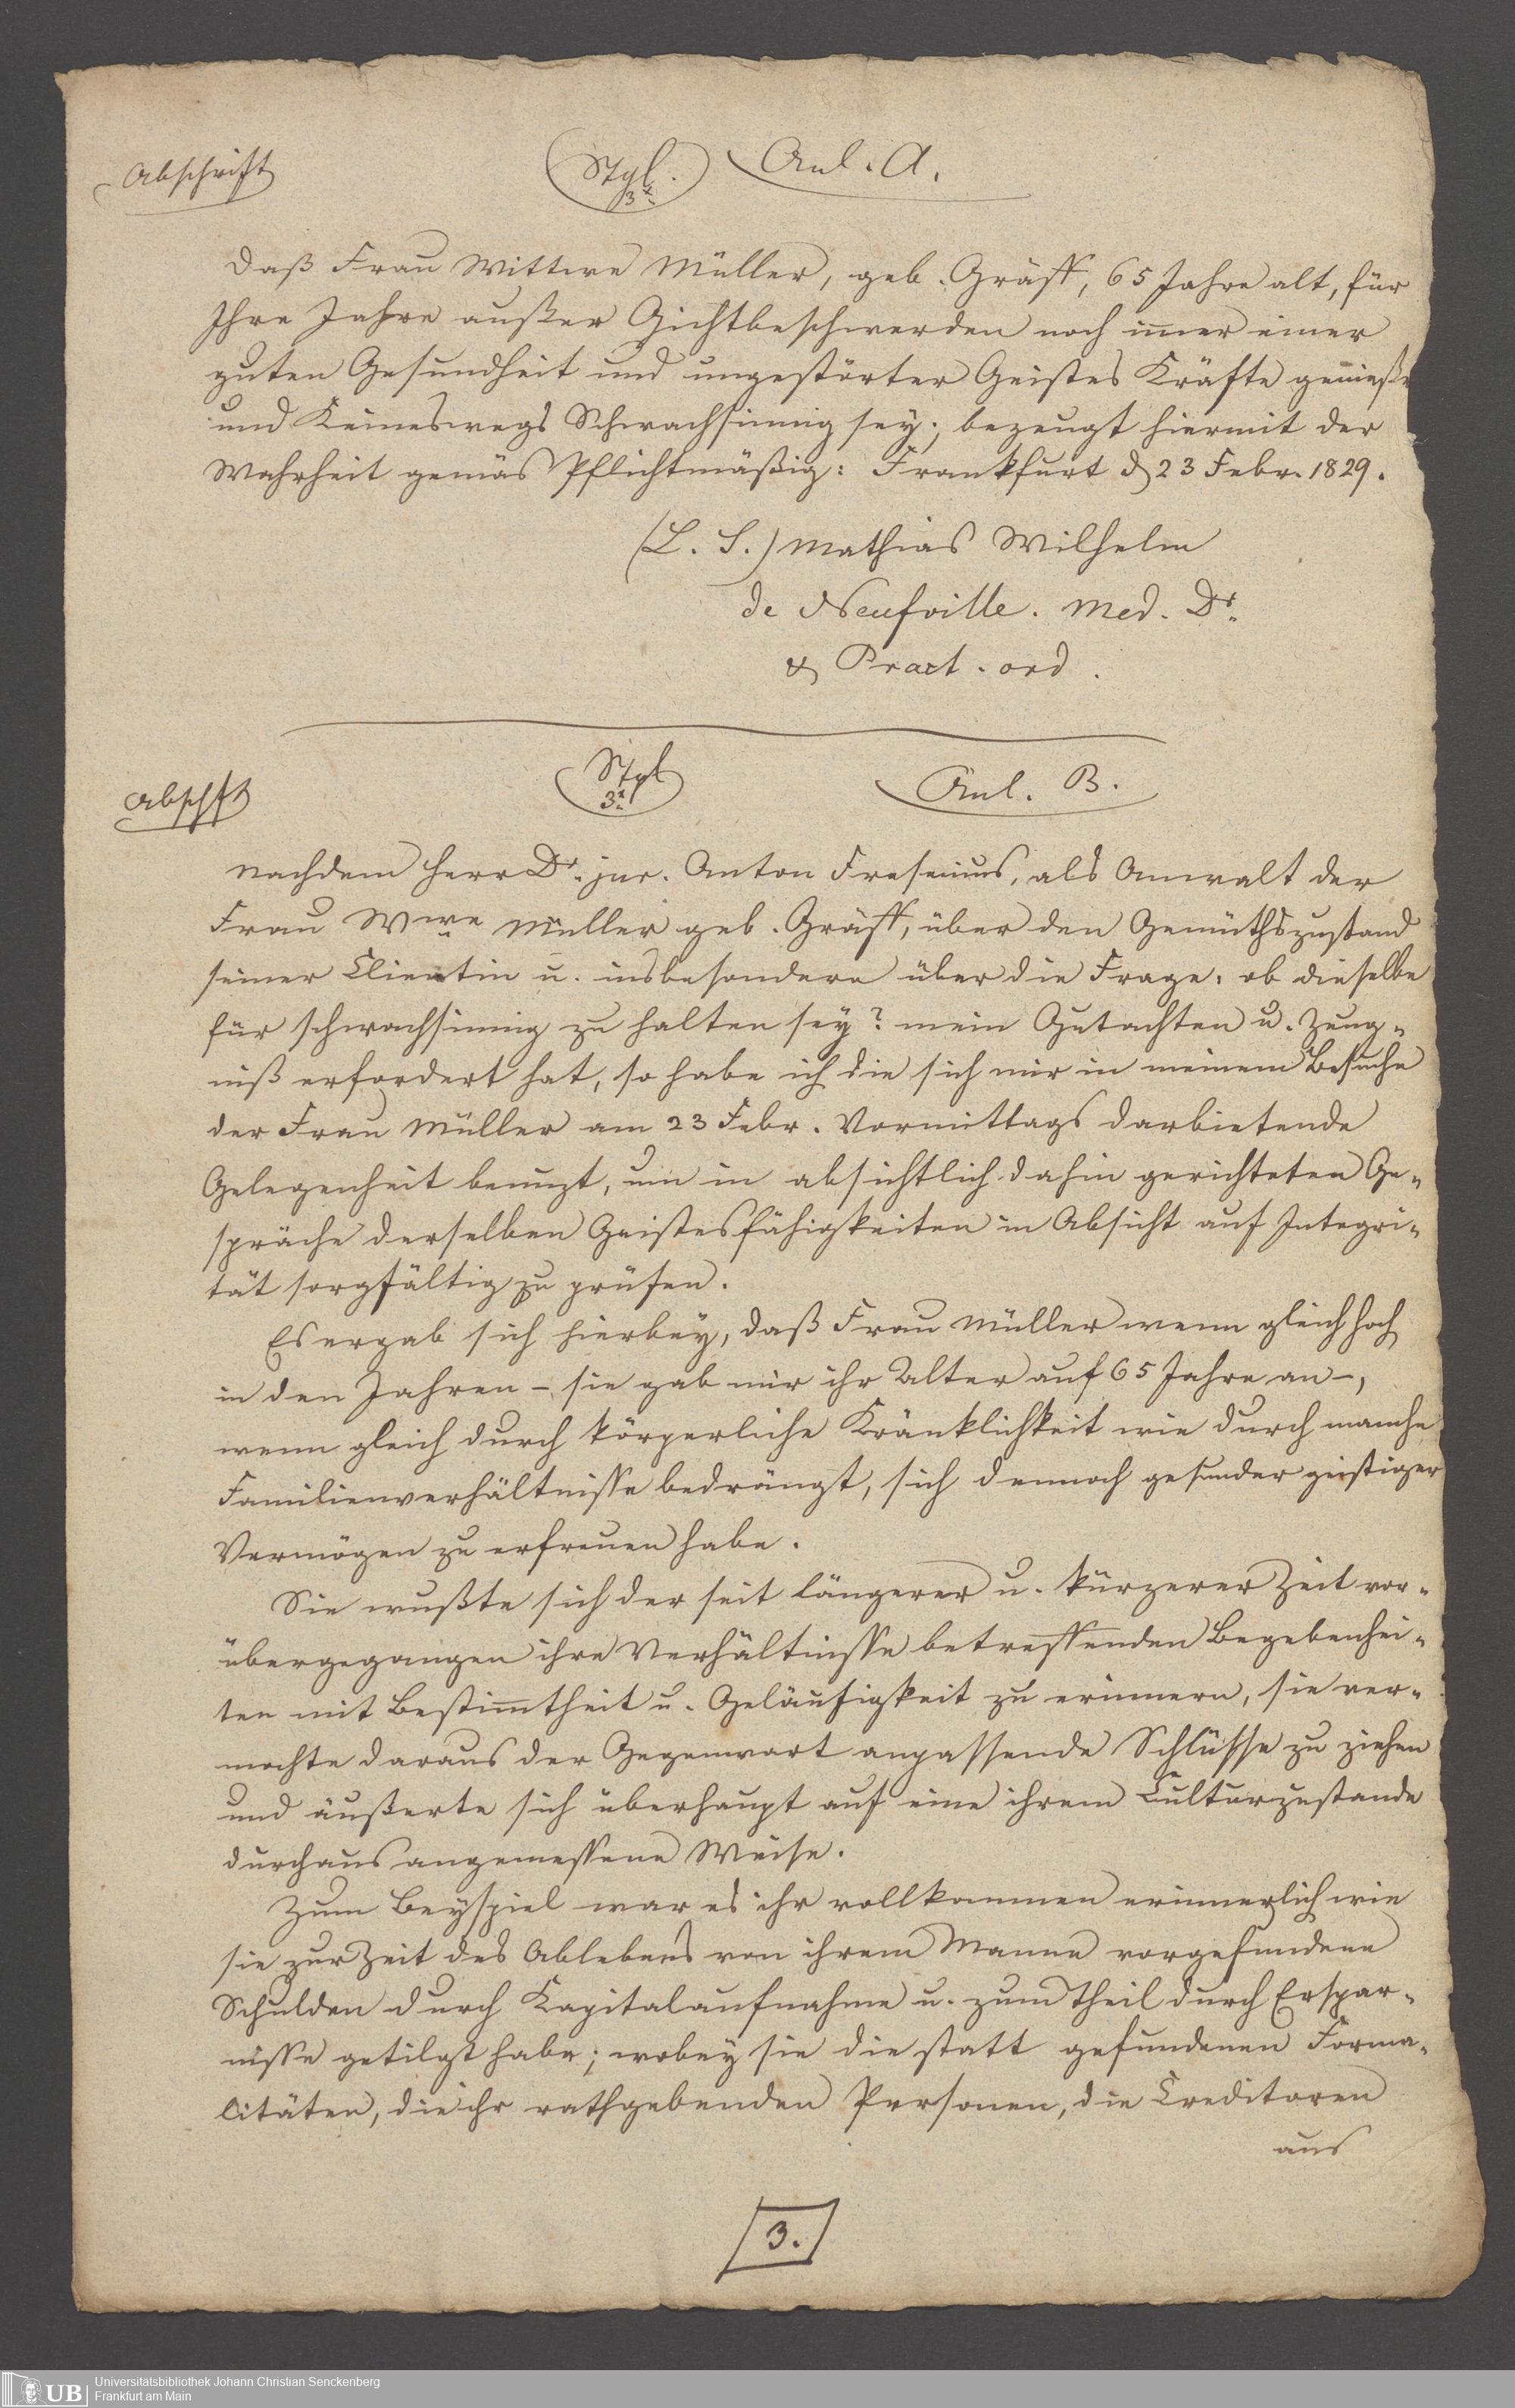 Abschrift
Styl.
3x
Anl. A.
Daß Frau Wittwe Müller, geb. Gräff, 65 Jahre alt, für
Ihre Jahre außer Gichtbeschwerden noch im̅er einer
guten Gesundheit und ungestörter Geistes Kräfte genieße
und Keineswegs Schwachsinnig sey; bezeugt hiermit der
Wahrheit gemäs Pflichtmäßig: Frankfurt d 23 Febr. 1829.
(L. S.) Mathias Wilhelm
de Neufville. Med. Dr.
& Pract. ord.
Abschft
Styl
3x
Anl. B.
Nachdem Herr Dr. jur. Anton Fresenius, als Anwalt der
Frau Wwe Müller geb. Gräff, über den Gemüthszustand
seiner Clientin u. insbesondere über die Frage: ob dieselbe
für schwachsinnig zu halten sey? mein Gutachten u. Zeug-
niß erfordert hat, so habe ich die sich mir in meinem Besuche
der Frau Müller am 23 Febr. Vormittags darbietende
Gelegenheit benuzt, um in absichtlich dahin gerichteten Ge-
spräche derselben Geistesfähigkeiten in Absicht auf Integri-
tät sorgfältig zu prüfen.
Es ergab sich hierbey, daß Frau Müller wenn gleich hoch
in den Jahren – sie gab mir ihr Alter auf 65 Jahre an –,
wenn gleich durch körperliche Kränklichkeit wie durch manche
Familienverhältnisse bedrängt, sich dennoch gesunder geistiger
Vermögen zu erfreuen habe.
Sie wußte sich der seit längerer u. kürzerer Zeit vor-
übergegangen ihre Verhältnisse betreffenden Begebenhei-
ten mit Bestim̅theit u. Geläufigkeit zu erinnern, sie ver-
mochte daraus der Gegenwart anpassende Schlüsse zu ziehen
und äußerte sich überhaupt auf eine ihrem Culturzustande
durchaus angemessene Weise.
Zum Beyspiel war es ihr vollkommen erinnerlich wie
sie zur Zeit des Ablebens von ihrem Manne vorgefundene
Schulden durch Kapitalaufnahme u. zum theil durch Erspar-
nisse getilgt habe; wobey sie die statt gefundenen Forma-
litäten, die ihr rathgebenden Personen, die Creditoren
aus
3.
UB
Universitätsbibliothek Johann Christian Senckenberg
Frankfurt am Main